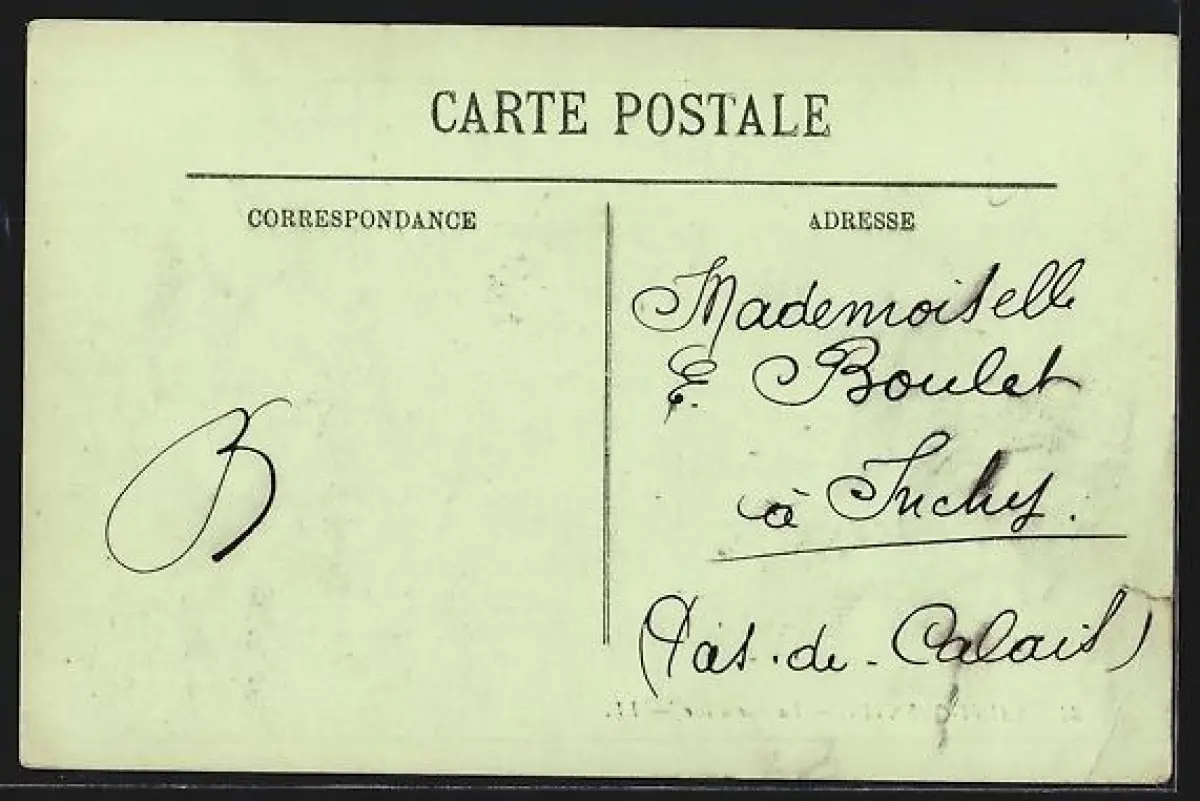 CARTE POSTALE
CORRESPONDANCE
ADRESSE
Mademoiselle
E. Boulet
à Inchy.
(Pas-de-Calais)